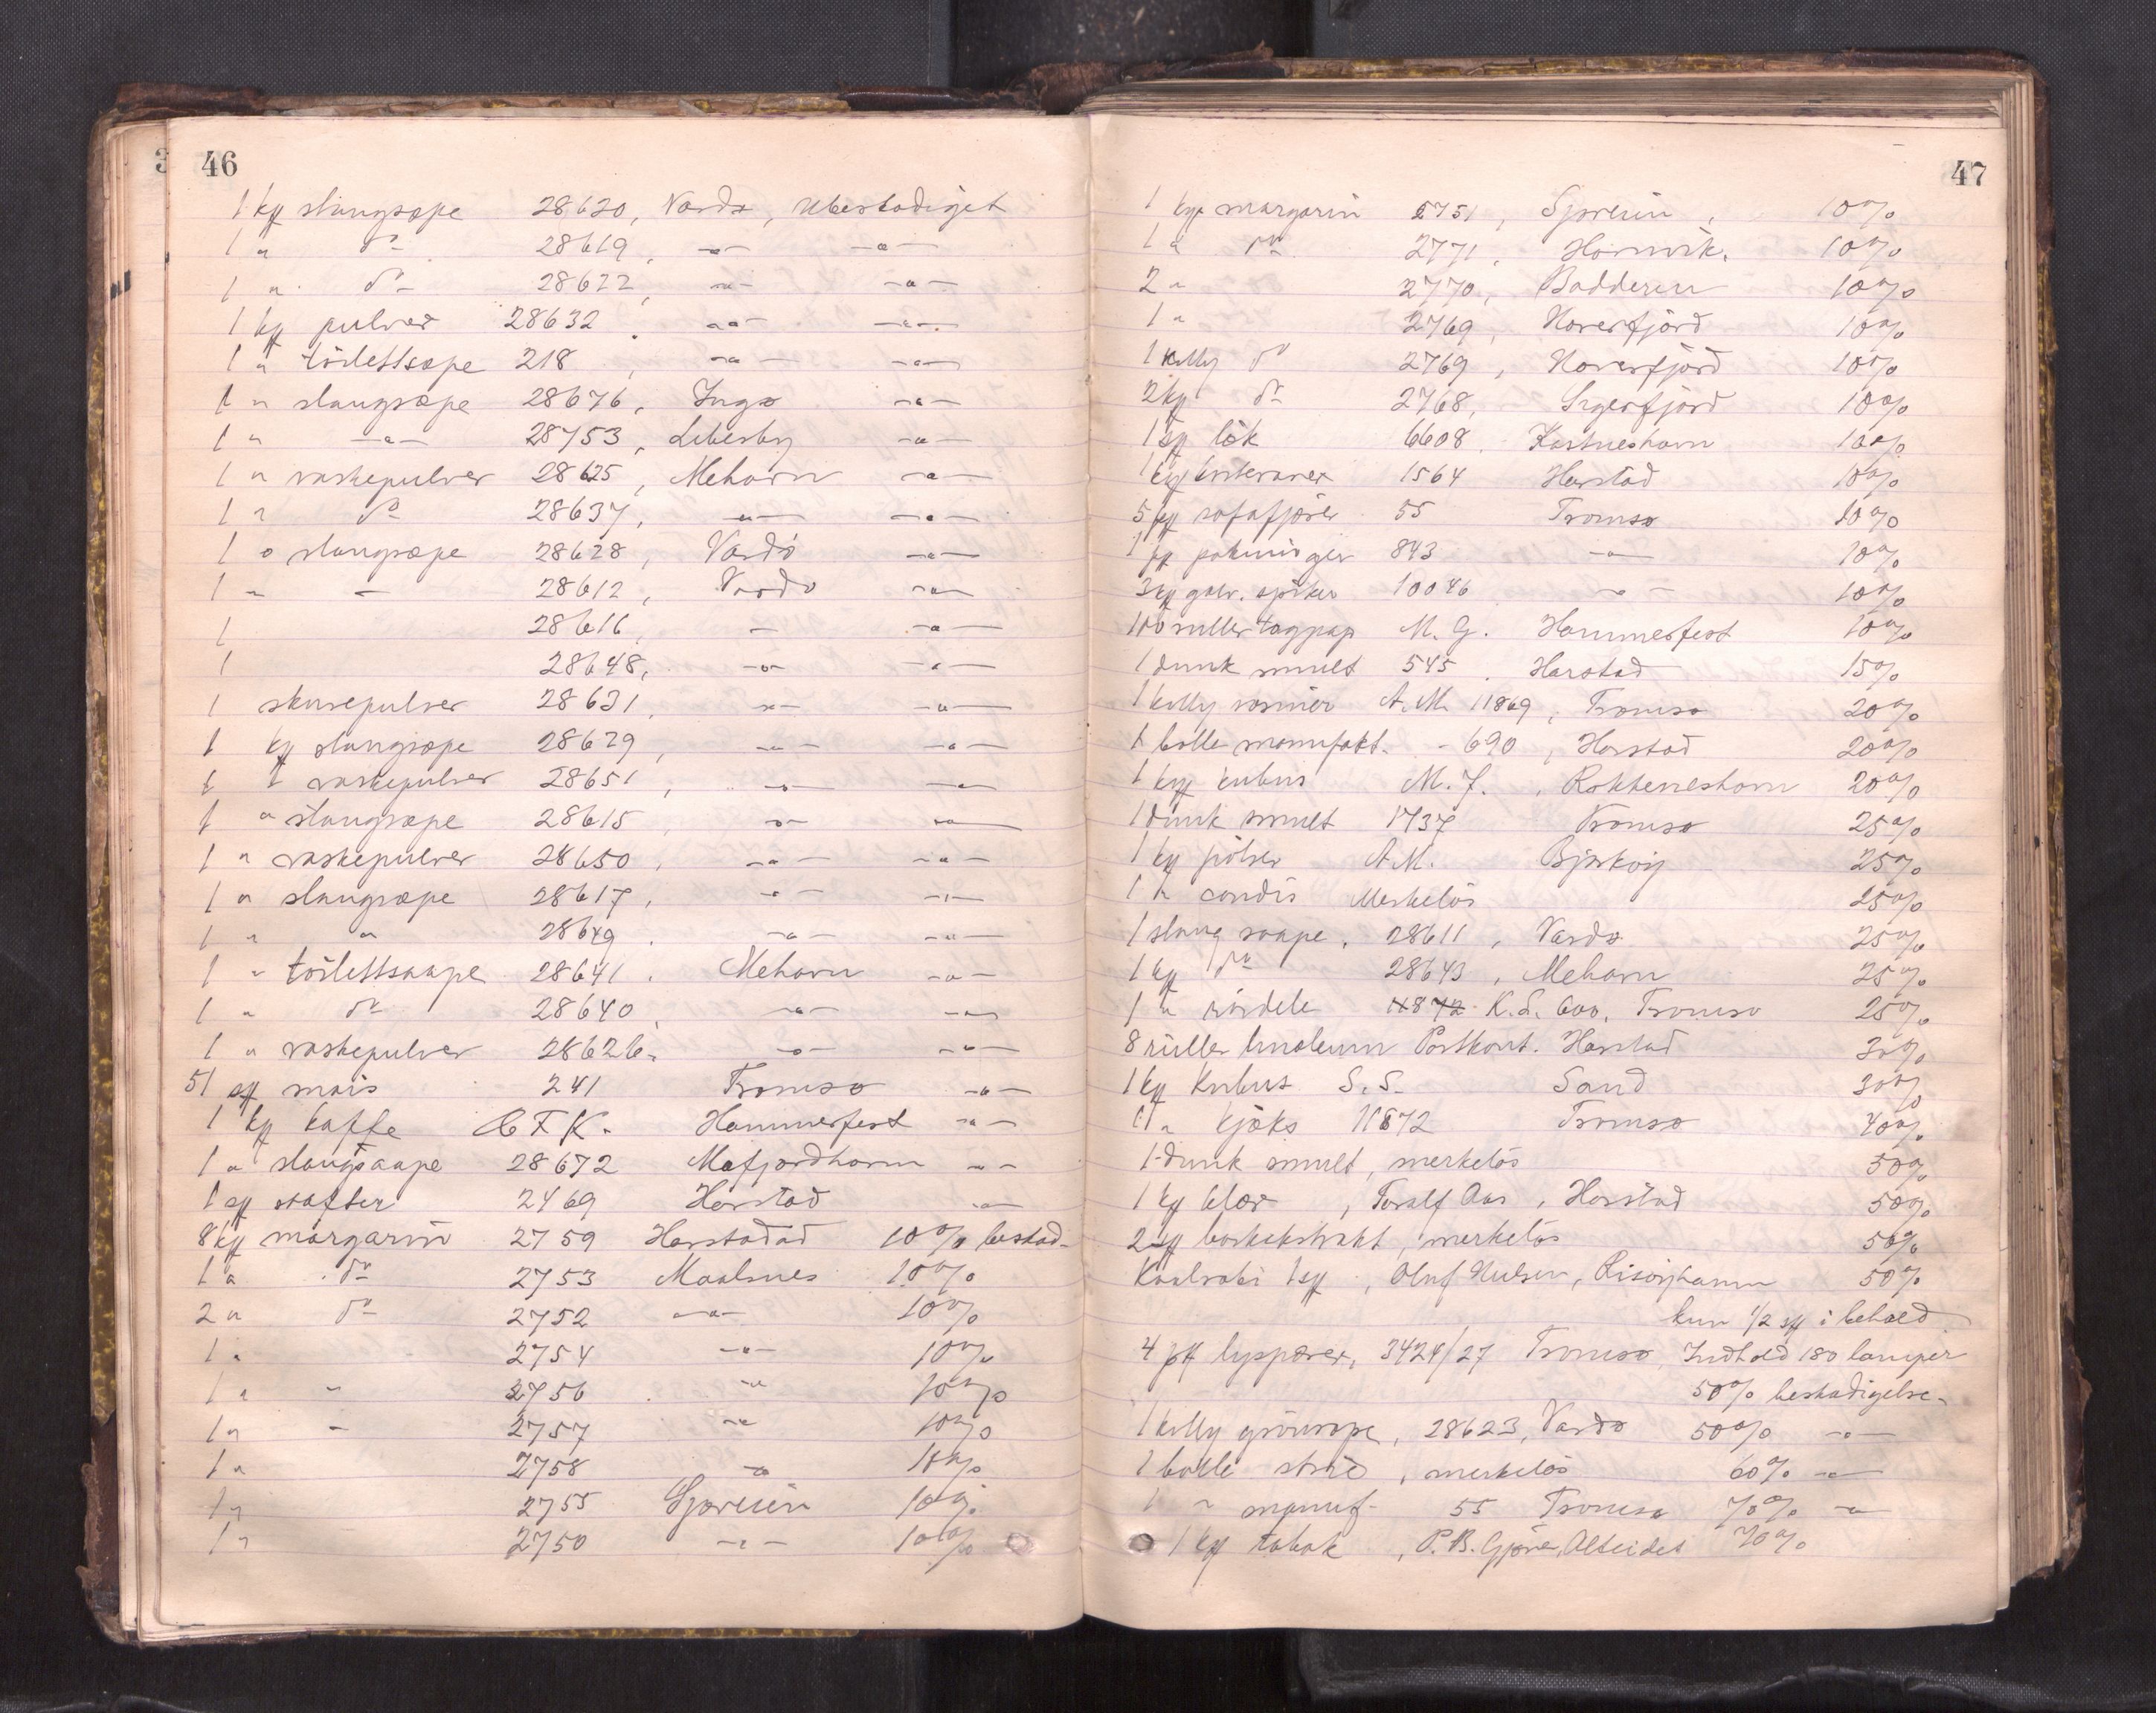 46
1 kss stangsæpe 28620, Vardø, Ubeskadiget
1 " do 28619, -"- -"-
1 " do 28622, -"- -"-
1 kss pulver 28632 -"- -"-
1 " toilettsæpe 218, -"- -"-
1 " stangsæpe 28676, Ingø -"-
1 " -"- 28753, Lebesby -"-
1 " vaskepulver 28625, Mehavn -"-
1 " do 28637, -"- -"-
1 " stangsæpe 28628, Vardö -"-
1 " - 28612, Vardö -"-
1 28616 - -"-
1 28648, -"- -"-
1 skurepulver 28631, -"- -"-
1 kss stangsæpe 28629, -"- -"-
1 " vaskepulver 28651, -"- -"-
1 " stangsæpe 28615 -"- -"-
1 " vaskepulver 28650, -"- -"-
1 " stangsæpe 28617, -"- -"-
1 " " 28649. -"- -"-
1 " toilettsaape 28641. Mehavn -"-
1 " do 28640, -"- -"-
1 " vaskepulver 28626. -"- -"-
51 sk mais 241 Tromsø -"-
1 kss kaffe C F K. Hammerfest -"-
1 " stangsaape 28672 Mefjordhavn -"-
1 sk 2469 Harstad -"-
8 kss margarin 2759 Harstadad 10% beskad.
1 " do 2753 Maalsnes 10%
2 " do 2752 -"- 10%
1 " 2754 -"- 10%
1 " - 2756 -"- 10%
1 " - 2757 -"- 10%
1 " 2758 -"- 10%
1 " 2755 Sjøveien 10%
1 " 2750 -"- 10%
47
1 kss margarin 2751, Sjøveien, 10%
1 " do 2771, Havnvik, 10%
2 " 2770, Badderen 10%
1 " 2769, Haverfjord 10%
1 kolly do 2769, Haverfjord 10%
2 kss do 2768, Sigerfjord 10%
1 sk lök 6608. Kastneshavn 10%
1 kss 1564 Harstad 10%
5 sofafjærer 55 Tromsø 10%
1 pk pakninger 843 -"- 10%
3 kss galv. spiker 10046 -"- 10%
100 ruller tagpap M. G. Hammerfest 10%
1 dunk smult 545. Harstad 15%
1 kolly rosiner A.M. 11869, Tromsø 20%
1 balle manufakt. - 690, Harstad 20%
1 kss kubus M. J., Rokkeneshavn 20%
1 dunk smult 1737 Tromsø 25%
1 kss pölser A.M. Bjarköy 25%
1 " candis Merkelös 25%
1 stang saape, 28611, Vardø 25%
1 kss do 28643, Mehavn 25%
1 " rördele 11872 K.L. Aas, Tromsø 25%
8 ruller linoleum Postkont. Harstad 30%
1 kss Kubus S. S. Sand 30%
1 " kjæks 11872 Tromsø 40%
1 dunk smult, merkelös 50%
1 kss klær, Toralf Aas, Harstad 50%
2 sk barkekstrakt, merkelös 50%
Kaalrabi 1 sk, Oluf Nielsen, Risöyhamn 50%
kun 1/2 sk i behold
4 pk lyspærer, 3424/27 Tromsø, Indhold 180 lamper
50% beskadigelse.
1 kolly grönsæpe, 28623, Vardø 50% -"-
1 balle strie, merkelös 60% -"-
1 " manuf. 55 Tromsø 70% -"-
1 kss tobak, P. B. Gjøvær, Alteidet 70%